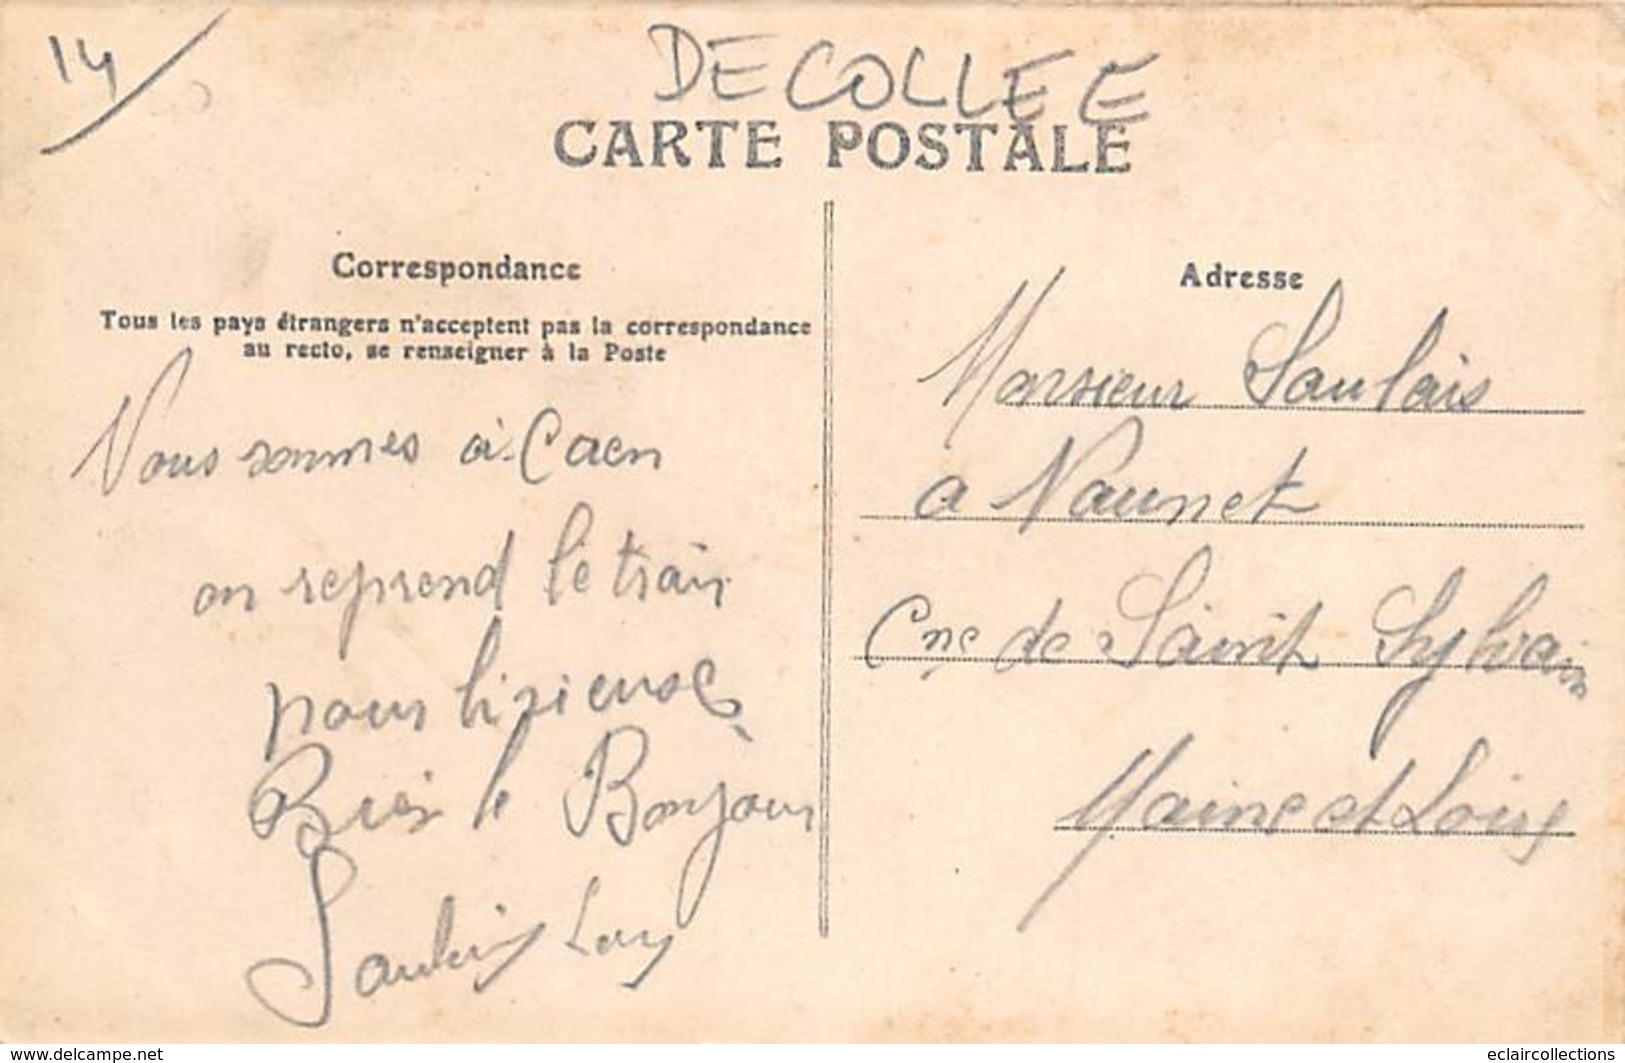 14
DECOLLEE
CARTE POSTALE
Correspondance
Tous les pays étrangers n'acceptent pas la correspondance
au recto, se renseigner à la Poste
Nous sommes à Caen
on reprend le train
pour lisieuse
Bien le Bonjour
Saulais
Adresse
Monsieur Saulais
a Naunet
Cne de Saint Sylvain
Maine et Loire
www.delcampe.net
eclaircollections